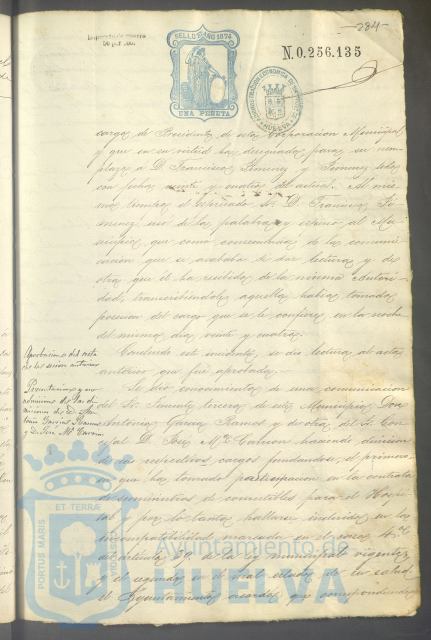 284
Impuesto de guerra
50 pts. 100
SELLO 11º AÑO 1874
UNA PESETA
N.0.256.135
ADMINISTRACION ECONOMICA DE LA PROVINCIA DE HUELVA
cargo de Presidente de esta Corporacion Municipal
y que en su virtud ha designado para su reem-
plazo a D. Francisco Jimenez y Jimenez todo
con fecha veinte y cuatro del actual. Al mis-
mo tiempo el espresado Sr. D. Francisco Ji-
menez usó de la palabra y espuso al Mu-
nicipio que como consecuencia de la comuni-
cacion que se acababa de dar lectura y de
otra que él ha recibido de la misma Autori-
dad, transcribiendole aquella, habia tomado
posesion del cargo que se le confiere en la noche
del mismo dia veinte y cuatro.
Aprobacion del acta
de la sesion anterior
Terminado este incidente se dio lectura al acta
anterior que fué aprobada.
Se dió conocimiento de una comunicacion
del Sr. Teniente tercero de este Municipio Don
Antonio Garcia Ramos y de otra del Sr. Con-
cejal D. José Mª Calderon haciendo dimision
de sus respectivos cargos fundandose, el primero
que ha tomado participacion en la contrata
de suministros de comestibles para el Hospi-
tal y por lo tanto hallarse incluido en la
incompatibilidad marcada en el caso 4º
del articulo 39 de la ley municipal vigente
y el segundo en el mal estado de su salud
el Ayuntamiento acordó que correspondiendo
PORTUS MARIS ET TERRÆ CUSTODIA
Ayuntamiento de
HUELVA